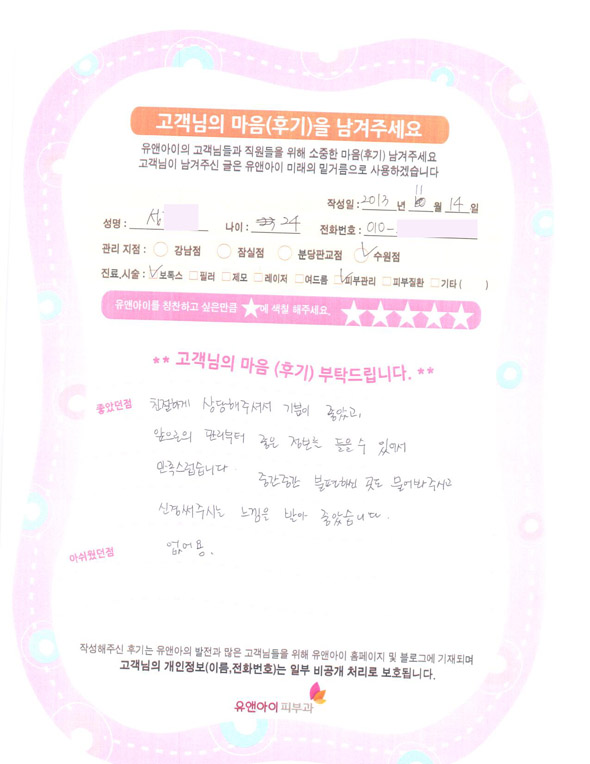 고객님의 마음(후기)을 남겨주세요
유앤아이의 고객님들과 직원들을 위해 소중한 마음(후기) 남겨주세요
고객님이 남겨주신 글은 유앤아이 미래의 밑거름으로 사용하겠습니다
작성일 : 2013 년 11 월 14 일
성명 : 나이 : 24 전화번호 : 010-
관리 지점 : 강남점 잠실점 분당판교점 수원점
진료,시술 : 보톡스 필러 제모 레이저 여드름 피부관리 피부질환 기타 ( )
유앤아이를 칭찬하고 싶은만큼 ★에 색칠 해주세요. ★★★★★
** 고객님의 마음 (후기) 부탁드립니다. **
좋았던점 친절하게 상담해주셔서 기분이 좋았고,
앞으로의 관리부터 좋은 정보를 들을 수 있어서
만족스럽습니다. 중간중간 불편하신 곳도 물어봐주시고
신경써주시는 느낌을 받아 좋았습니다.
아쉬웠던점 없어용.
작성해주신 후기는 유앤아의 발전과 많은 고객님들을 위해 유앤아이 홈페이지 및 블로그에 기재되며
고객님의 개인정보(이름,전화번호)는 일부 비공개 처리로 보호됩니다.
유앤아이 피부과